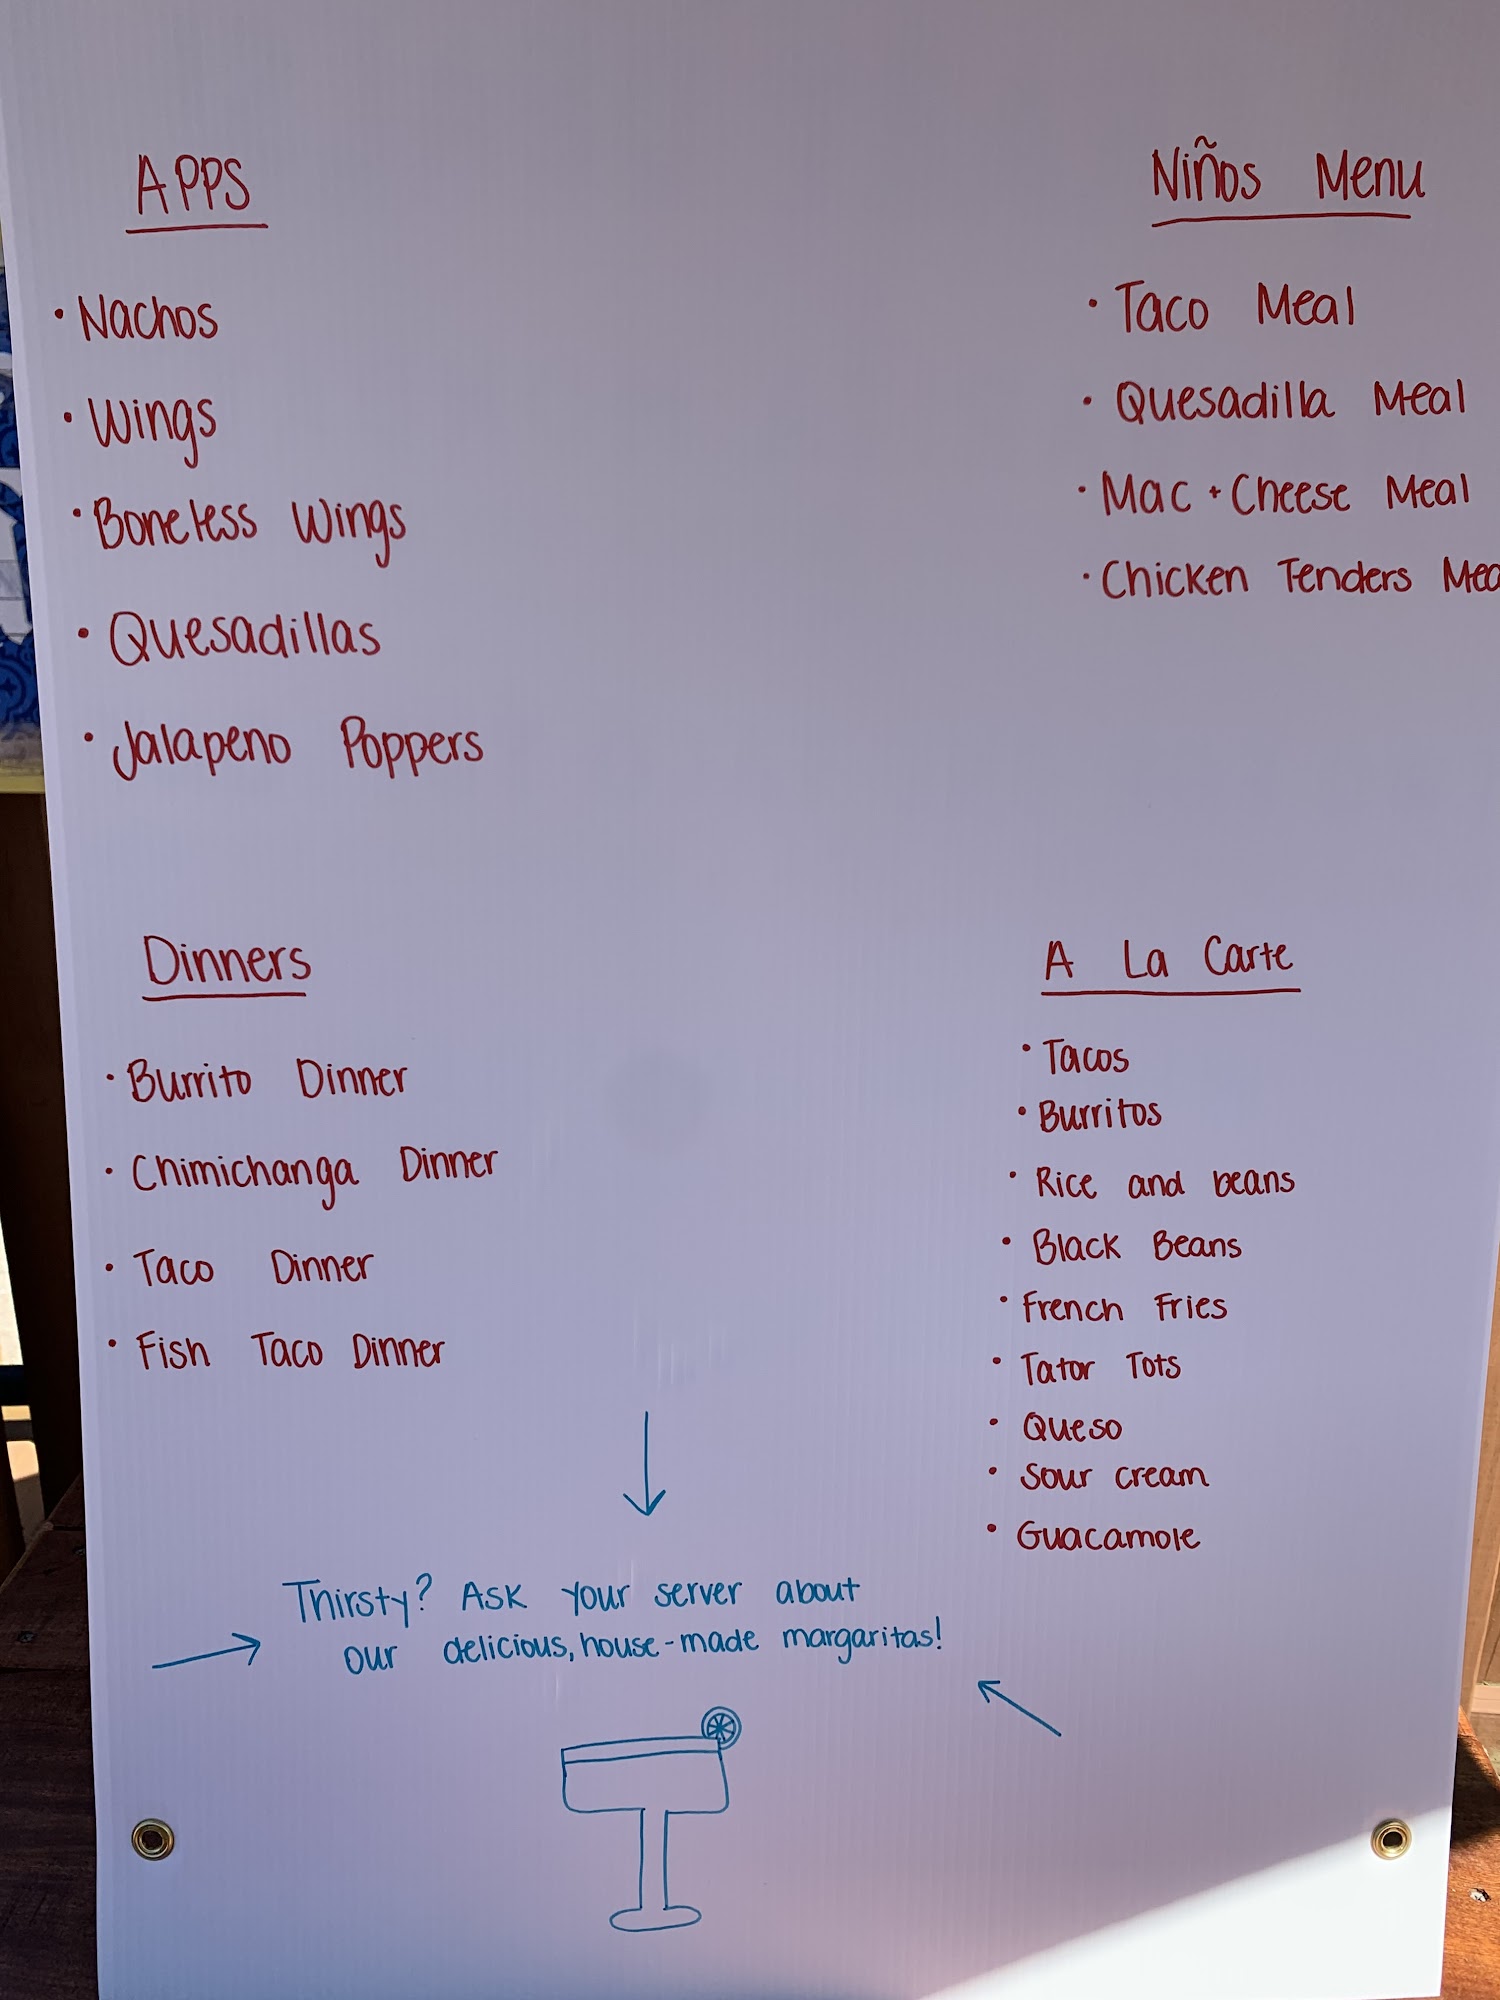 APPS
• Nachos
• Wings
• Boneless Wings
• Quesadillas
• Jalapeno Poppers
Niños Menu
• Taco Meal
• Quesadilla Meal
• Mac + Cheese Meal
• Chicken Tenders Mea
Dinners
• Burrito Dinner
• Chimichanga Dinner
• Taco Dinner
• Fish Taco Dinner
A La Carte
• Tacos
• Burritos
• Rice and beans
• Black Beans
• French Fries
• Tator Tots
• Queso
• Sour cream
• Guacamole
Thirsty? Ask your server about
our delicious, house-made margaritas!